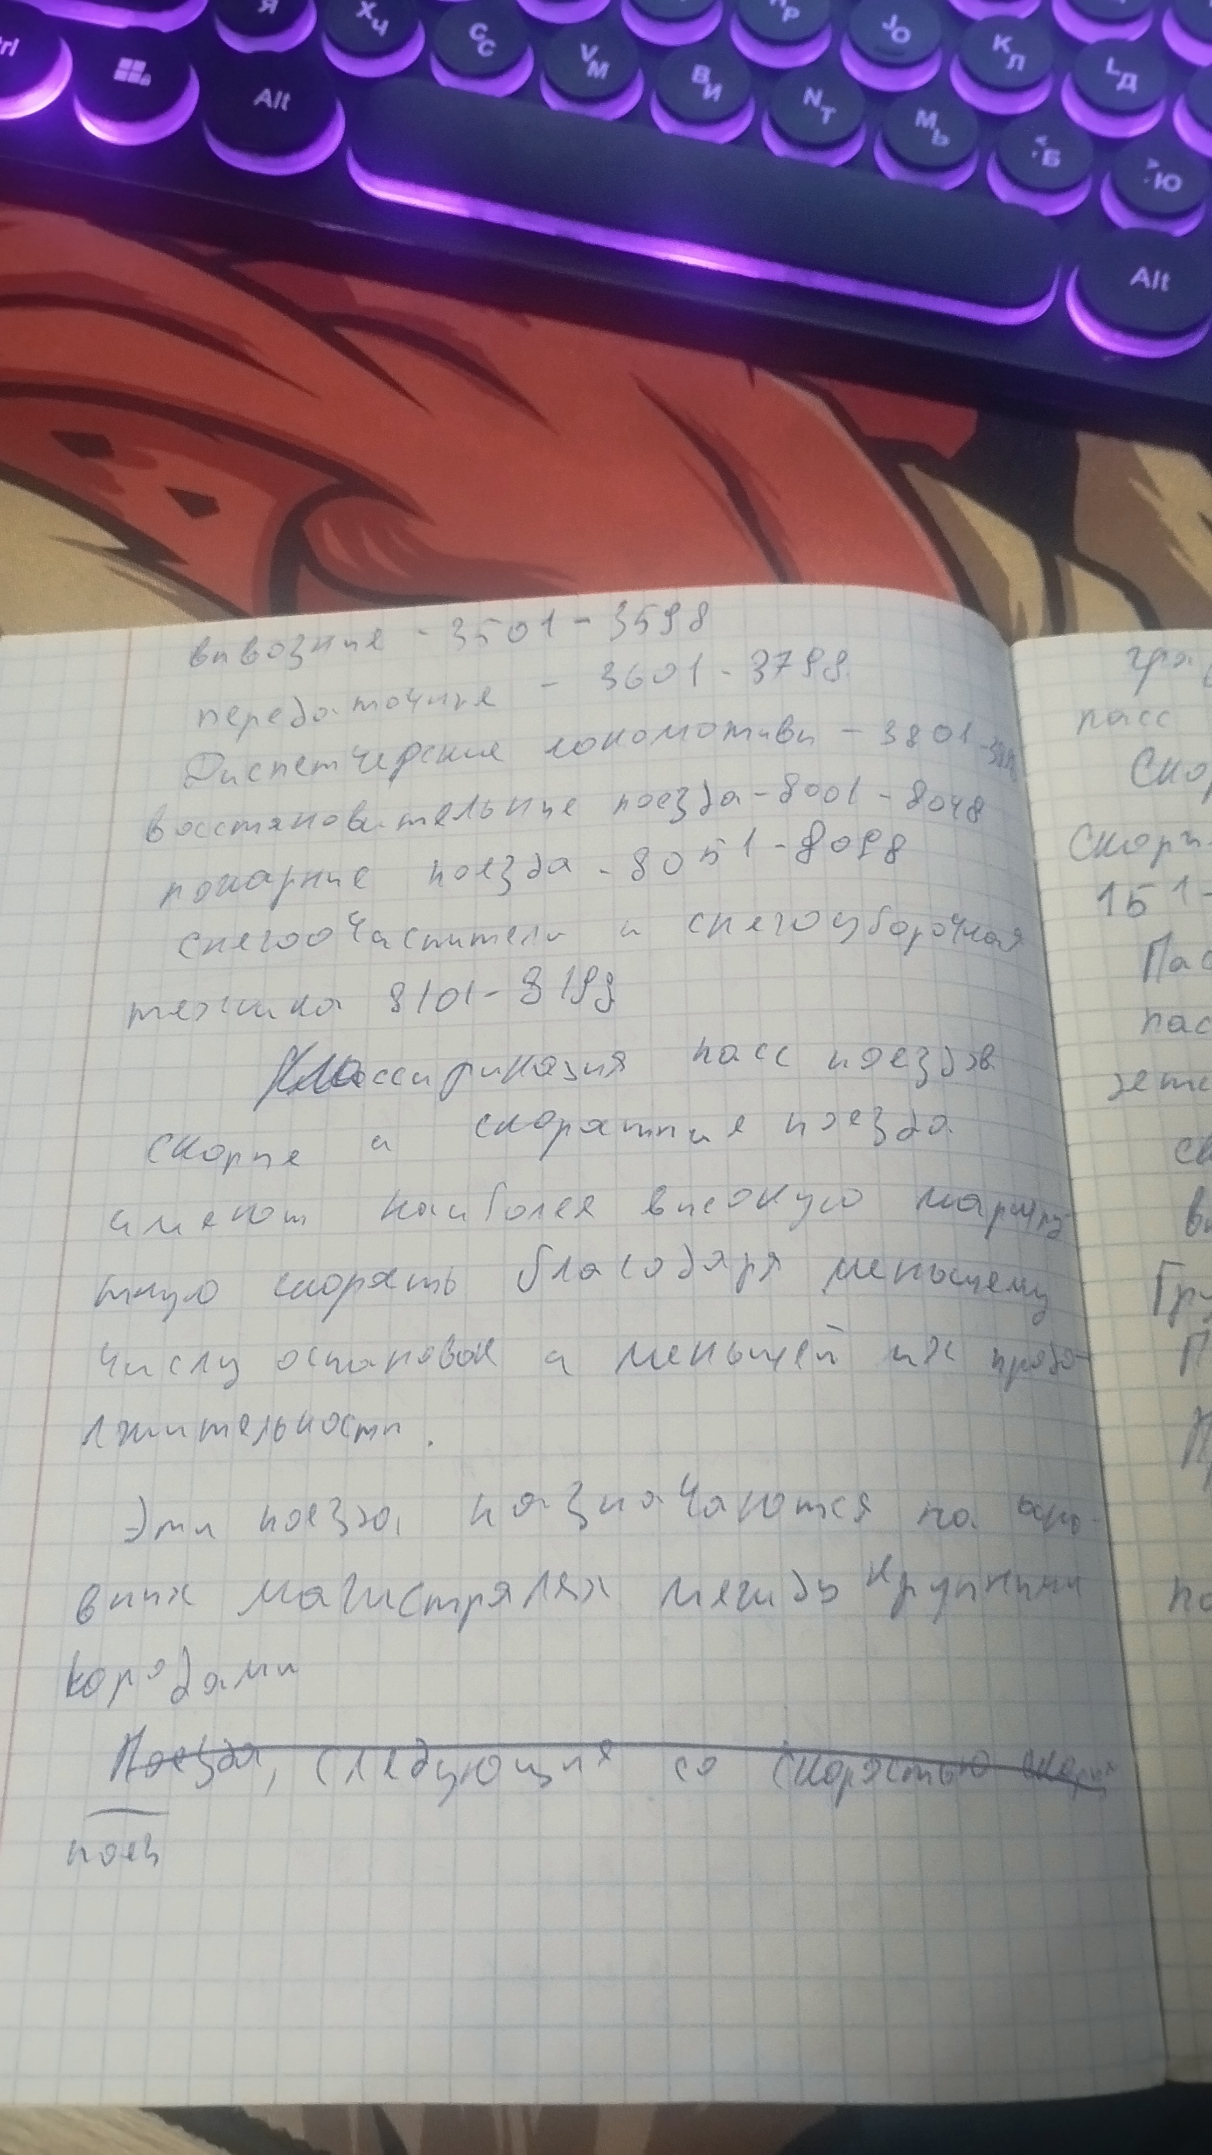 Я
Х Ч
С С
V М
В И
N Т
М Ь
J О
К Л
L Д
< , Б
> . Ю
Alt
Alt
вывозные - 3501 - 3598
передаточные - 3601 - 3798
Диспетчерские локомотивы - 3801 -
восстановительные поезда - 8001 - 8048
пожарные поезда - 8051 - 8098
снегоочистители и снегоуборочная
техника 8101 - 8198
Классификация пасс поездов
Скорые и скоростные поезда
имеют наиболее высокую маршру-
тную скорость благодаря меньшему
числу остановок и меньшей их продо-
лжительности.
Эти поезда назначаются на осно-
вных магистралях между крупными
городами
Поезда, следующие со скоростью скорых
поез
пасс
Скор
151-
Пас
пас
св
Гру
П
по